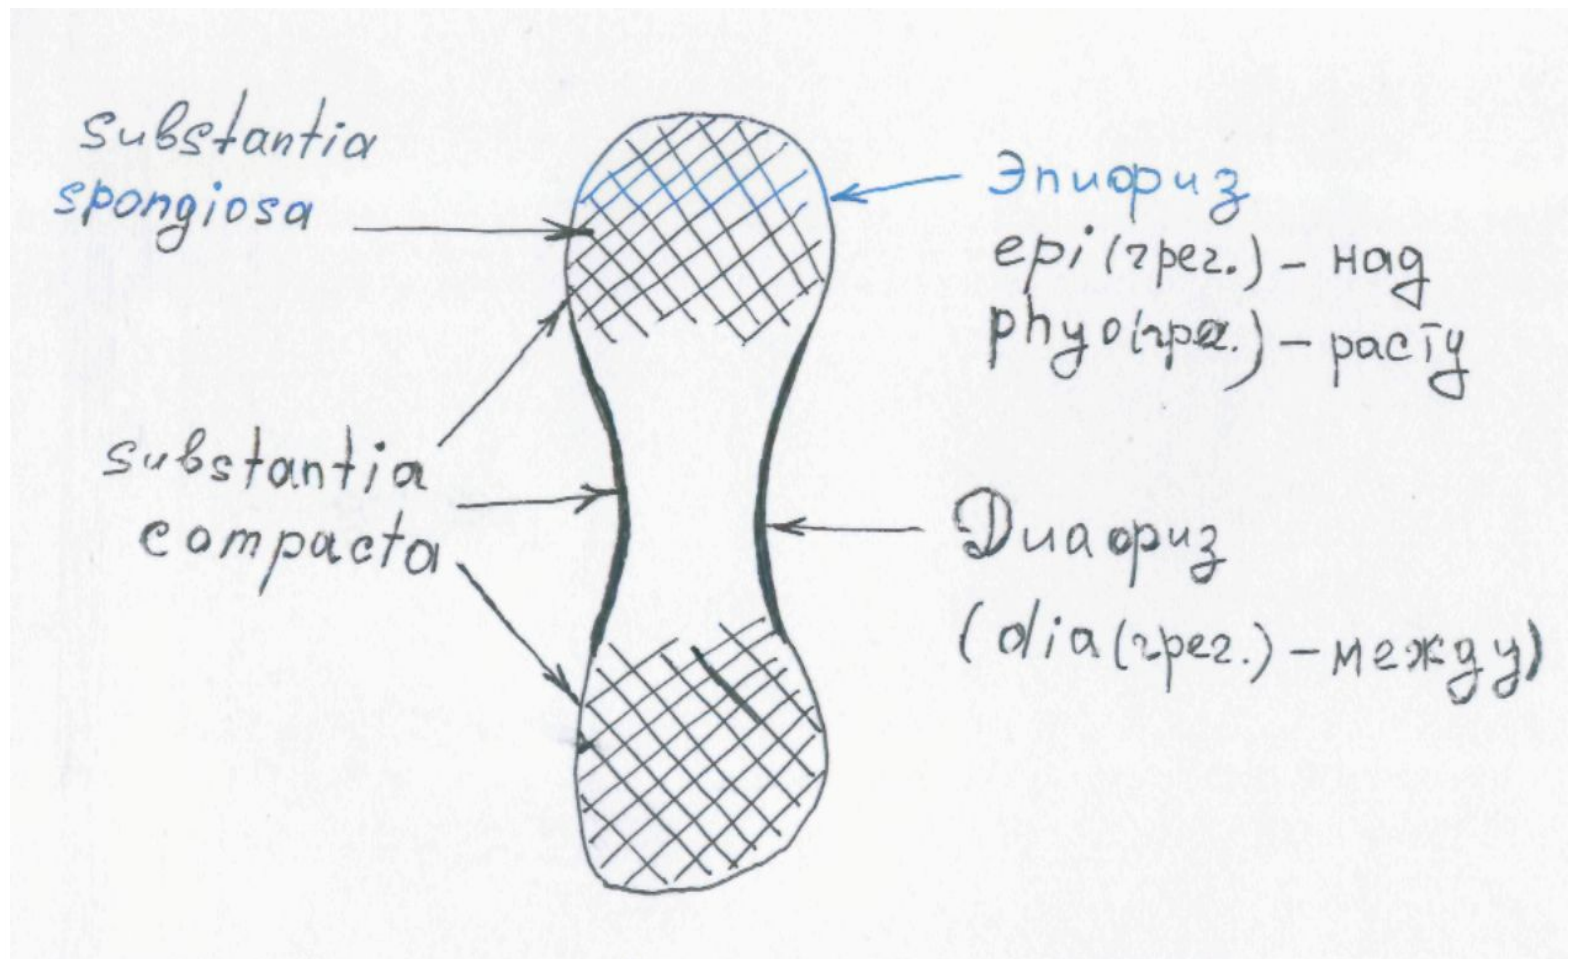 substantia
spongiosa
substantia
compacta
Эпифиз
epi (грег.) – над
phyo (гре.) – расту
Диафиз
(dia (грег.) – между)